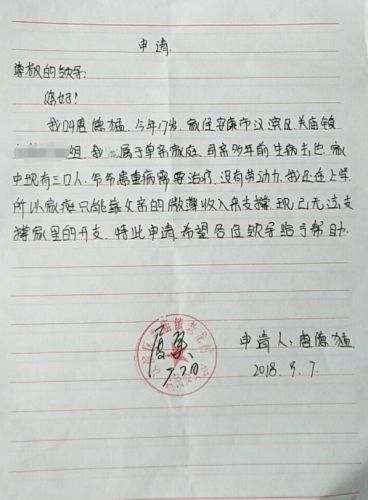 申请
尊敬的领导:
您好!
我叫唐德猛,今年17岁,家住安康市汉滨区关庙镇
组,我属于单亲家庭,母亲多年前生病去世,家
中现有三口人,爷爷患重病需要治疗,没有劳动力,我还在上学
所以家庭只能靠父亲的微薄收入来支撑,现已无法支
撑家里的开支,特此申请,希望各位领导给予帮助。
申请人:唐德猛
2018.9.7.
7.20